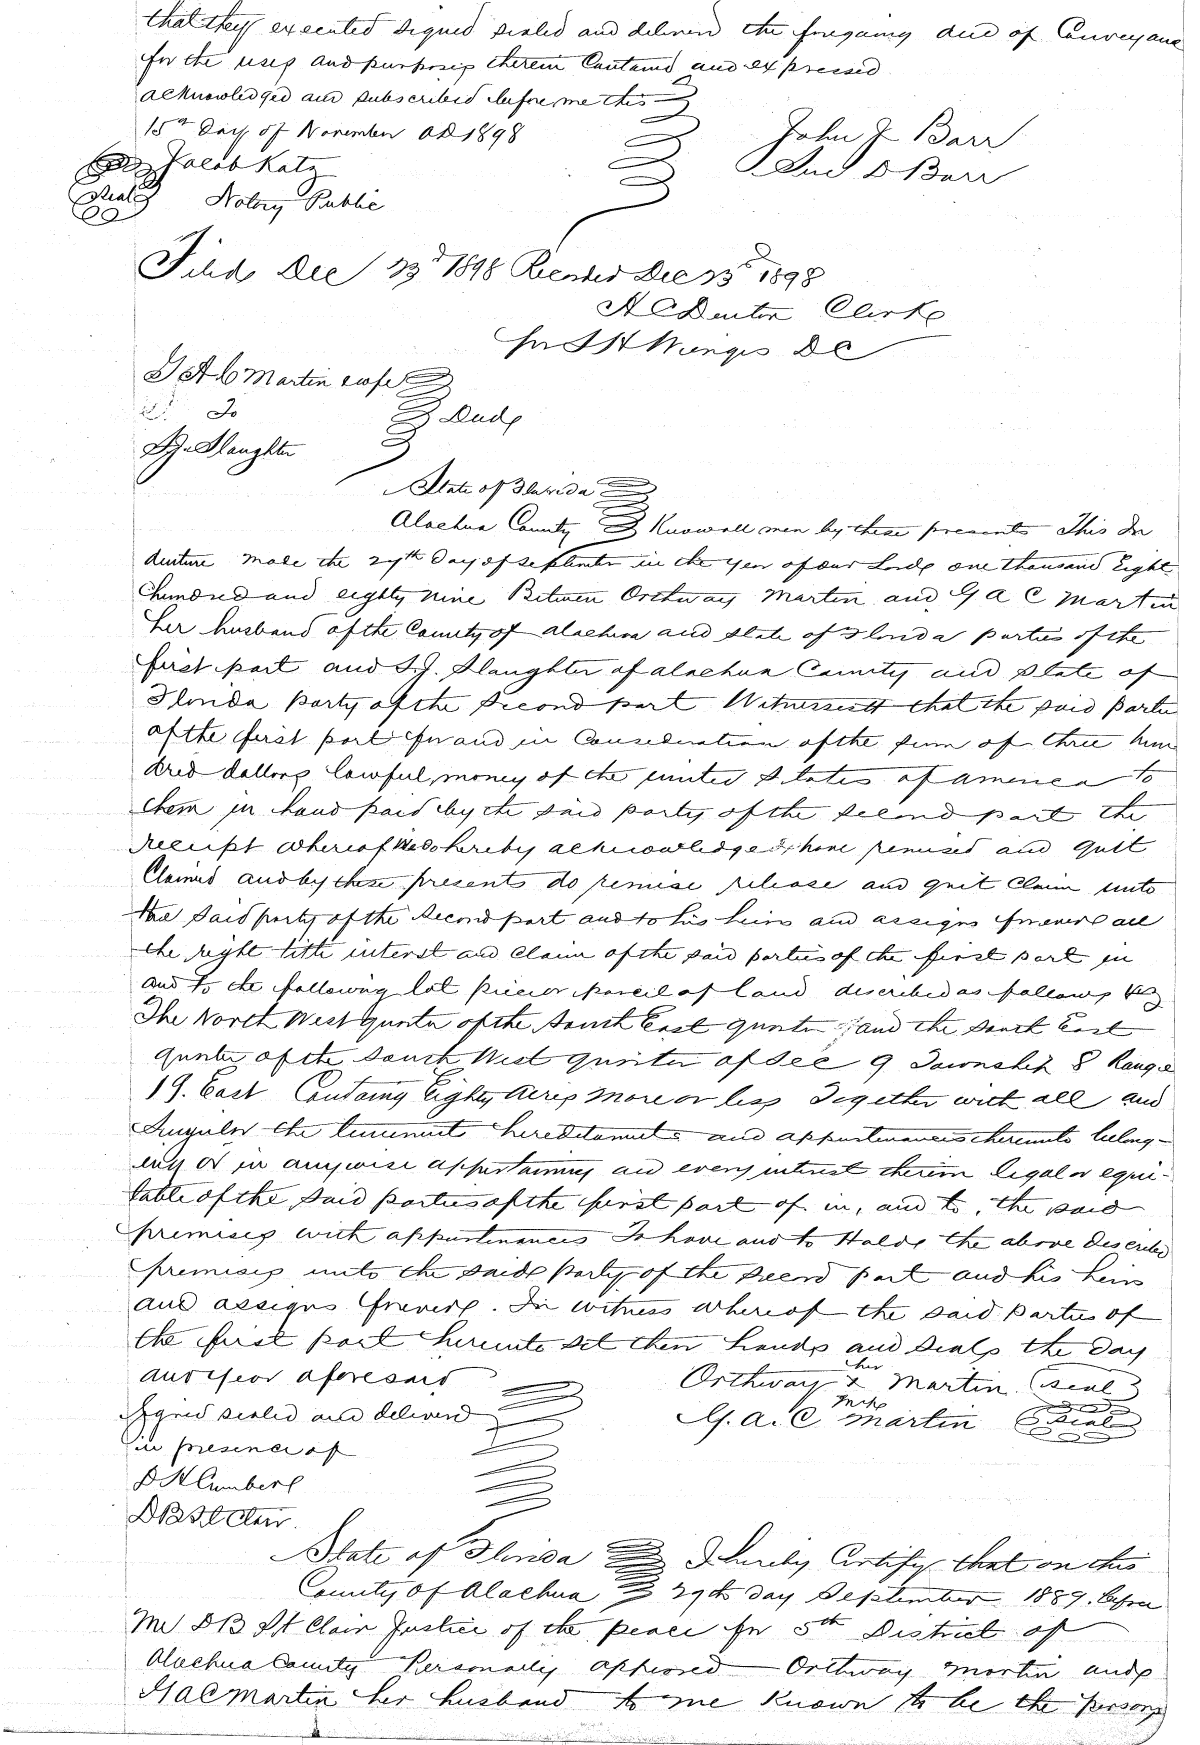 that they executed signed sealed and deliverd the foregoing deed of Conveyanc
for the uses and purposes therein Containd and expressed
acknowledged and subscribed before me this
15th Day of November AD 1898
John J Barr
D Barr
Jacob Katz
Seal Notary Public
Filed Dec 23d 1898 Recorded Dec 23d 1898
H C Denton Clerk
for S H Wienges DC
G A C Martin & wife
To Deed
S.J. Slaughter
State of Florida
Alachua County Know all men by these presents This In
denture made the 29th Day of September in the year of our Lord one thousand Eight
hundred and eighty nine Between Orthway Martin and G A C Martin
her husband of the County of Alachua and State of Florida parties of the
first part and S.J. Slaughter of Alachua County and State of
Florida party of the Second part Witnesseth that the said partie
of the first part for and in Consideration of the sum of three hun
dred dollars lawful money of the united States of America to
them in hand paid by the said party of the second part the
receipt whereof We do hereby acknowledge & have remised and quit
Claimed and by these presents do remise release and quit Claim unto
the said party of the Second part and to his heirs and assigns forever all
the right title interst and claim of the said parties of the first part in
and to the following lot piece or parcel of land described as follows Viz
The North West quarter of the South East quarter and the South East
quarter of the South West quarter of Sec 9 Township 8 Range
19. East Containg Eighty Acres more or less Together with all and
Singular the tenements hereditaments and appurtenances thereunto belong-
ing or in anywise appertaining and every interest therein legal or equi-
table of the said parties of the first part of in, and to, the said
premises with appurtenances To have and to Hold the above described
premises unto the said party of the second part and his heirs
and assigns forever. In witness whereof the said parties of
the first part hereunto set their hands and seals the day
and year aforesaid
her
Orthway x Martin (seal)
mark
Signed sealed and deliverd G. A. C Martin (seal)
in presence of
D H Cumberl
D B St Clair.
State of Florida I hereby Certify that on this
County of Alachua 29th day September 1889. before
Me D B St Clair Justice of the peace for 5th District of
Alachua County Personally appeared Orthway Martin and
G A C Martin her husband to me known to be the persons